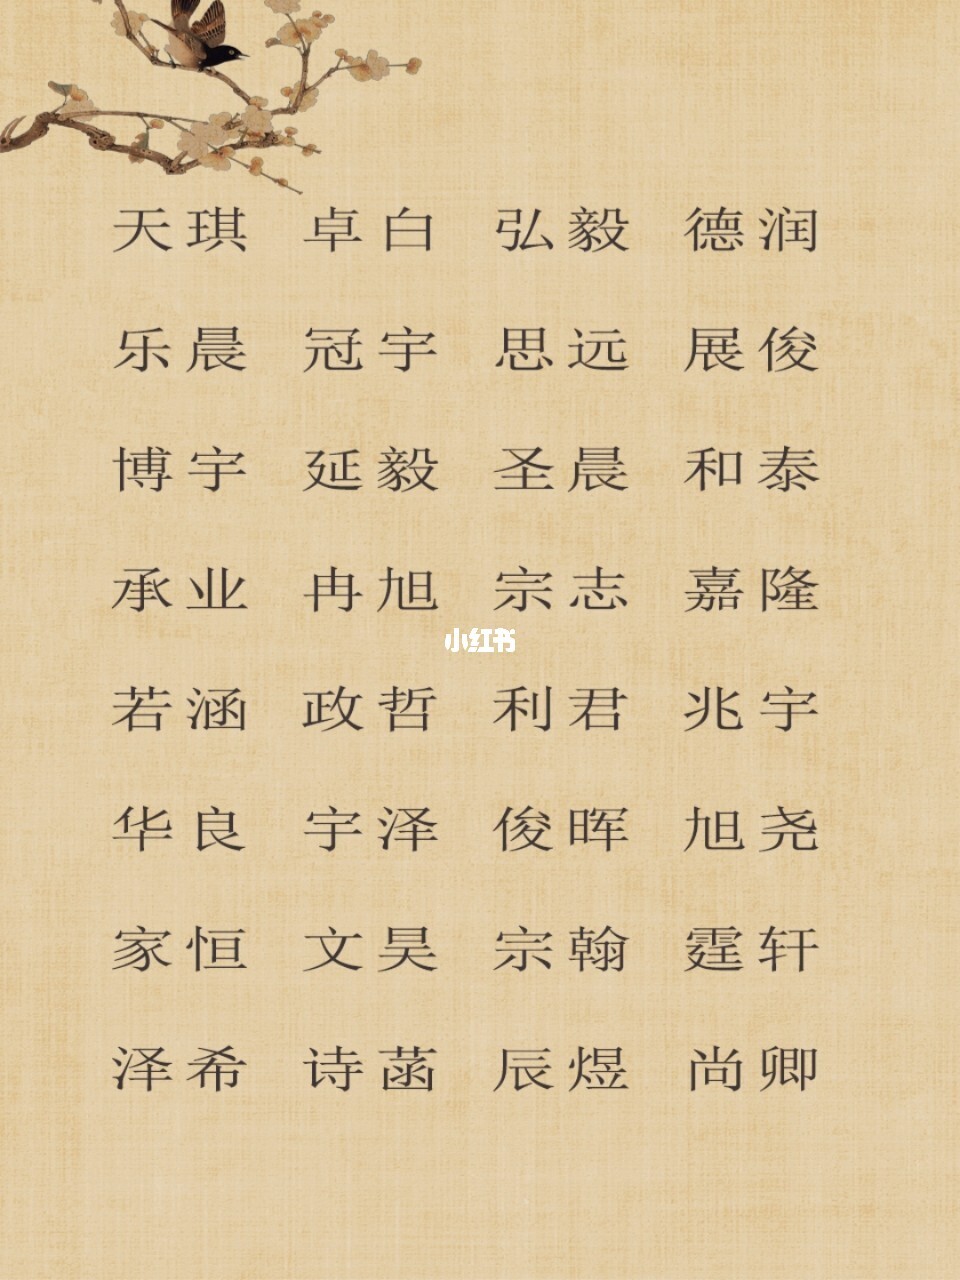 天琪 卓白 弘毅 德润
乐晨 冠宇 思远 展俊
博宇 延毅 圣晨 和泰
承业 冉旭 宗志 嘉隆
小红书
若涵 政哲 利君 兆宇
华良 宇泽 俊晖 旭尧
家恒 文昊 宗翰 霆轩
泽希 诗菡 辰煜 尚卿